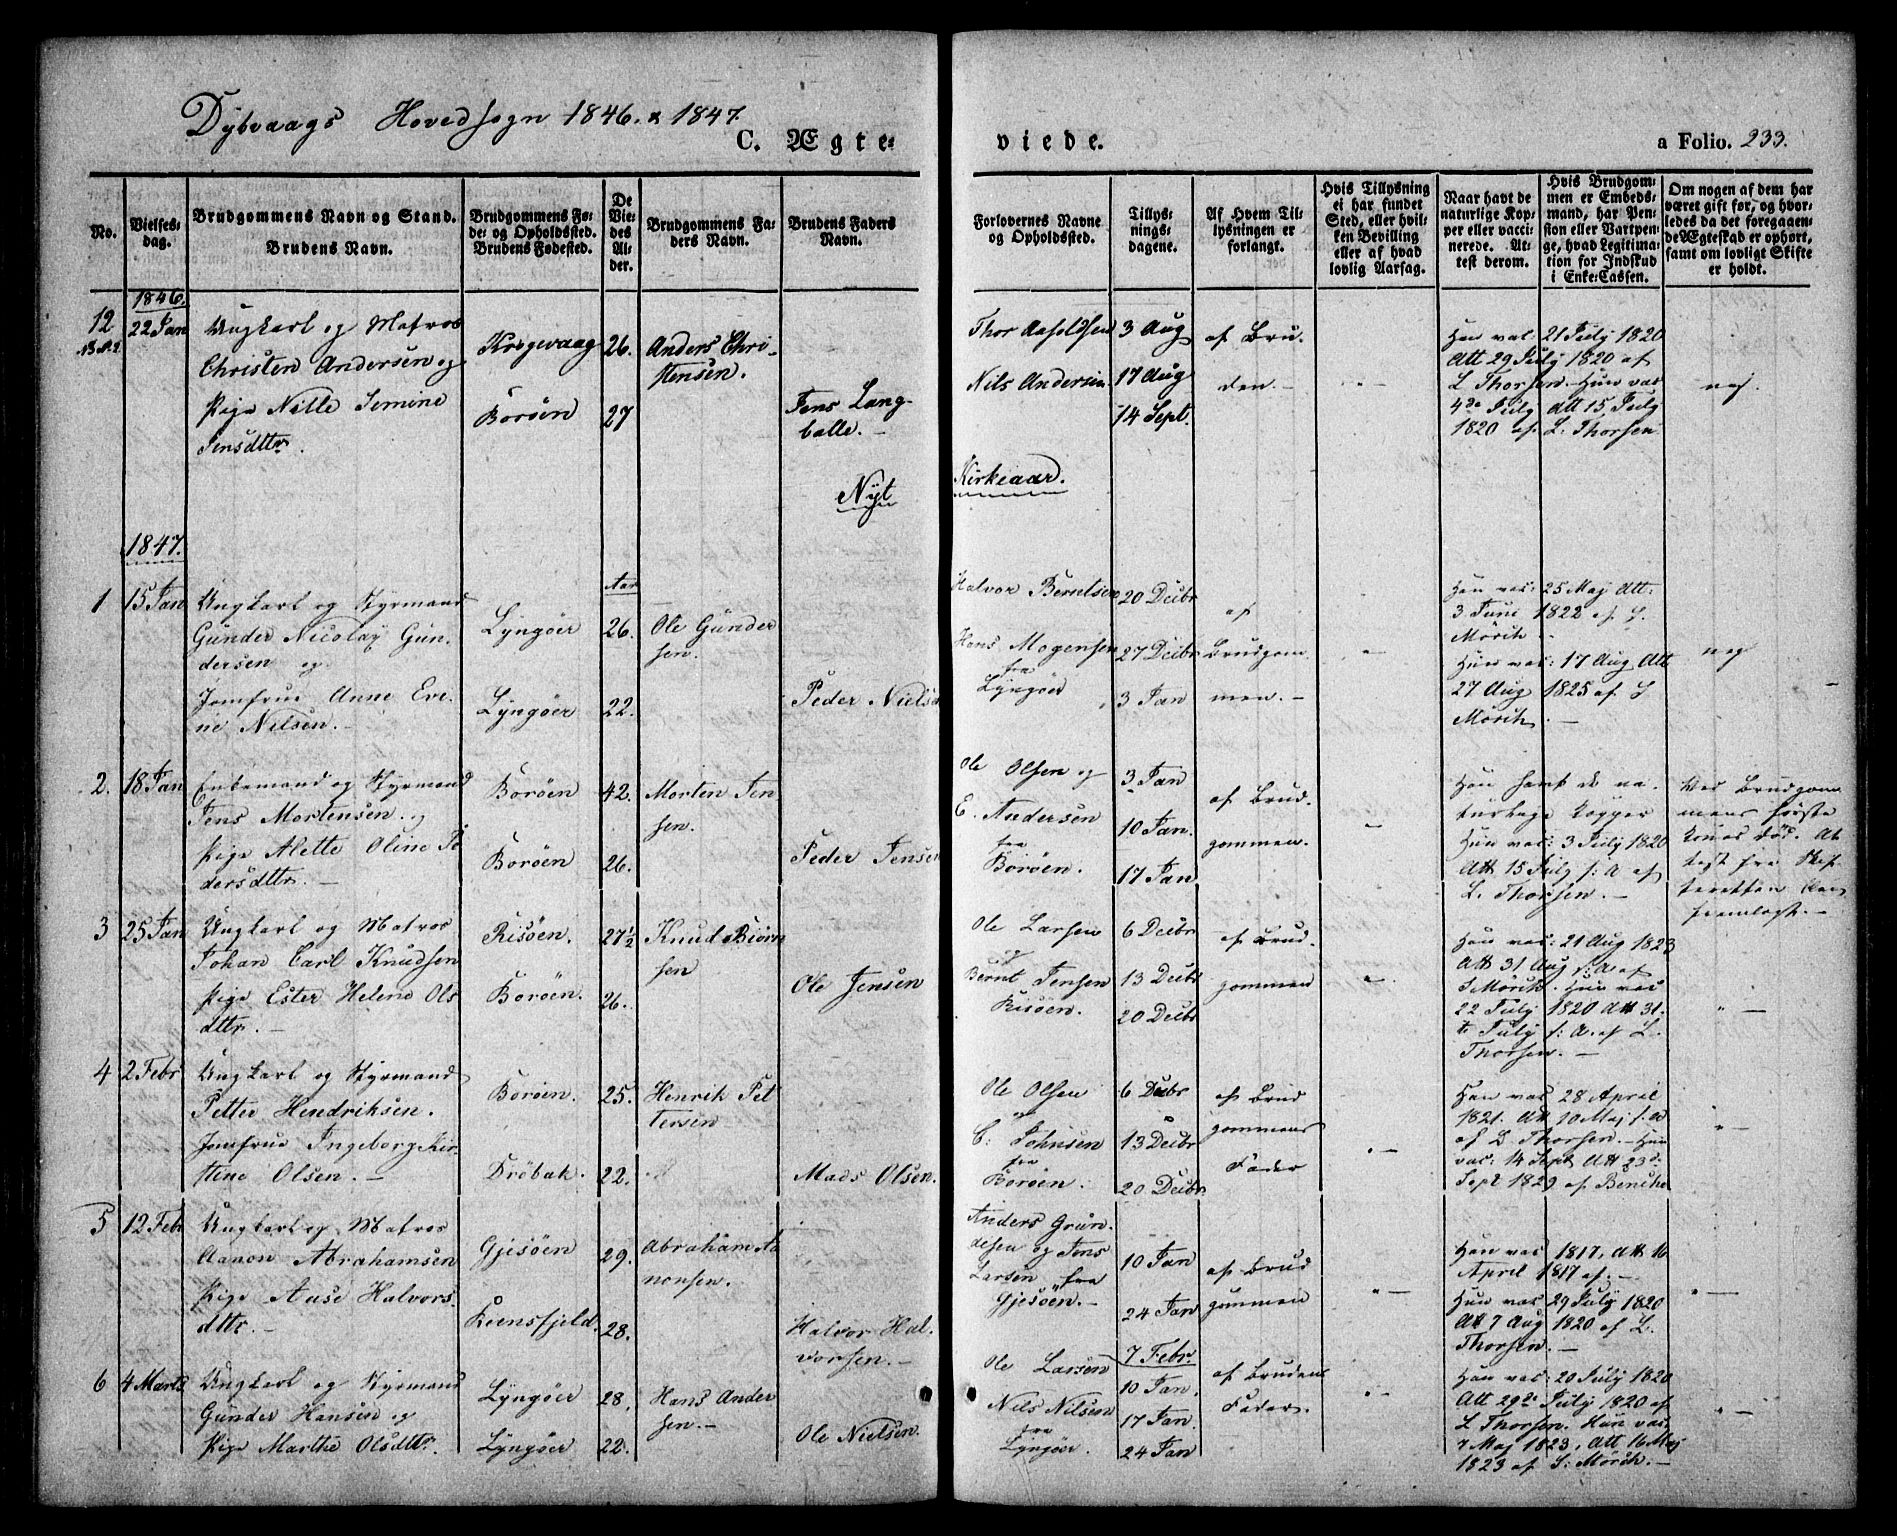 Dybvaags Hovedsogn 1846. & 1847.
C. Ægte-
viede.
a Folio. 233.
No.
Vielses-
dag.
Brudgommens Navn og Stand.
Brudens Navn.
Brudgommens Fø-
de- og Opholdssted.
Brudens Fødested.
De
Vie-
des
Al-
der.
Brudgommens Fa-
ders Navn.
Brudens Faders
Navn.
Forlovernes Navne
og Opholdssted.
Tillys-
nings-
dagene.
Af Hvem Til-
lysningen er
forlangt.
Hvis Tillysning
ei har fundet
Sted, eller hvil-
ken Bevilling
eller af hvad
lovlig Aarsag.
Naar havt de
naturlige Kop-
per eller vacci-
nerede. At-
test derom.
Hvis Brudgom-
men er Embeds-
mand, har Pen-
sion eller Vartpen-
ge, hvad Legitima-
tion for Indskud
i Enke-Cassen.
Om nogen af dem har
været gift før, og hvor-
ledes da det foregaaen-
de Ægteskab er ophørt,
samt om lovligt Skifte
er holdt.
1846.
12
22 Jan
Ungkarl og Matros
Christen Andersen og
Pige Nille Semine
Jensdttr.
Krogevaag
Borøen
26.
27
Anders Chri-
stensen.
Jens Lang-
balle.
Thor Aasoldsen
Nils Andersen
3 Aug
17 Aug
14 Sept.
af Bru-
den.
Han vac: 21 July 1820
Att 29 July 1820 af
L Thorsen. Hun vac
4de July Att 15 July
1820 af L. Thorsen
nej
Nyt
Kirkeaar.
1847.
Aar
1
15 Jan
Ungkarl og Styrmand
Gunder Nicolay Gun-
dersen og
Jomfrue Anne Eve-
ne Nilsen.
Lyngøer
Lyngøer
26.
22.
Ole Gunder
sen.
Peder Niels
Halvor Berntsen
Hans Mogensen
fra
Lyngøer
20 Decbr
27 Decbr
3 Jan
af
Brudgom-
men.
Han vac: 25 Maj Att:
3 June 1822 af S.
Mörch
Hun vac: 17 Aug Att
27 Aug 1825 af S
Mörch.
nej
2.
18 Jan
Enkemand og Styrmand
Jens Mortensen og
Pige Alette Oline Pe
dersdttr.
Borøen
Borøen
42.
26.
Morten Jen
sen.
Peder Jensen
Ole Olsen og
E. Andersen
fra
Borøen.
3 Jan
10 Jan.
17 Jan
af Brud-
gommen.
Han havt de na-
turlige Kopper
Hun vac: 3 July 1820
Att 15 July s: A af
L. Thorsen.
Ved Brudgom
mens første
Kones Død. At
test fra Skif
teretten
fremlagt.
3
25 Jan
Ungkarl og Matros
Johan Carl Knudsen
Pige Ester Helene Ols
dttr.
Risøen.
Borøen.
27½
26.
Knud Biørn
sen
Ole Jensen
Ole Larsen
og
Bernt Jensen
Risøen.
6 Decbr
13 Decbr
20 Decbr
af Brud-
gommen
Han vac: 21 Aug 1823
Att 31 Aug s: A. af
S Mörch. Hun vac
22 July 1820 Att 31.
July s: A. af L.
Thorsen.
4
2 Febr
Ungkarl og Styrmand
Petter Hendriksen.
Jomfrue Ingeborg Kir-
stine Olsen.
Borøen.
Drøbak.
25.
22.
Henrik Pet
tersen
Mads Olsen.
Ole Olsen
og
C: Johnsen
fra
Borøen.
6 Decbr
13 Decbr
20 Decbr
af Brud
gommens
Fader
Han vac: 28 April
1821. Att 10 Maj s. A
af L Thorsen. Hun
vac: 14 Sept Att 23d
Sept 1829 af
5
12 Febr
Ungkarl og Matros
Aanon Abrahamsen
Pige Aase Halvors-
dttr.
Gjesøen
Kvensfjeld.
29.
28.
Abraham Aa
nonsen.
Halvor Hal-
vorsen.
Anders Grun-
desen og Jens
Larsen fra
Gjesøen.
10 Jan
24 Jan
7 Febr.
af Brud
gommen
Han vac 1817, Att 16
April 1817 af:
Hun vac 29 July 1820
Att 7 Aug 1820 af L.
Thorsen.
6
4 Marts
Ungkarl og Styrmand
Gunder Hansen og
Pige Marthe Olsdttr.
Lyngøer
Lyngøer
28.
22.
Hans Ander
sen.
Ole Nielsen.
Ole Larsen
Nils Nilsen
fra
Lyngøer
10 Jan.
17 Jan.
24 Jan
af Brudens
Fader.
Han vac: 20 July 1820
Att 29de July 1820 af
L Thorsen. Hun vac:
7 Maj 1823, Att 16 Maj
1823 af S: Mörch.